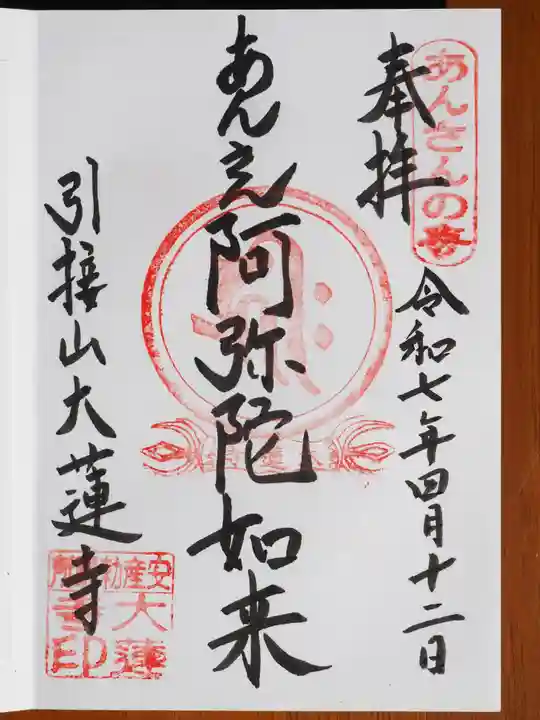 あんさんの寺
奉拝
令和七年四月十二日
あんざん阿弥陀如来
引接山大蓮寺
安産勅願所
大蓮寺印